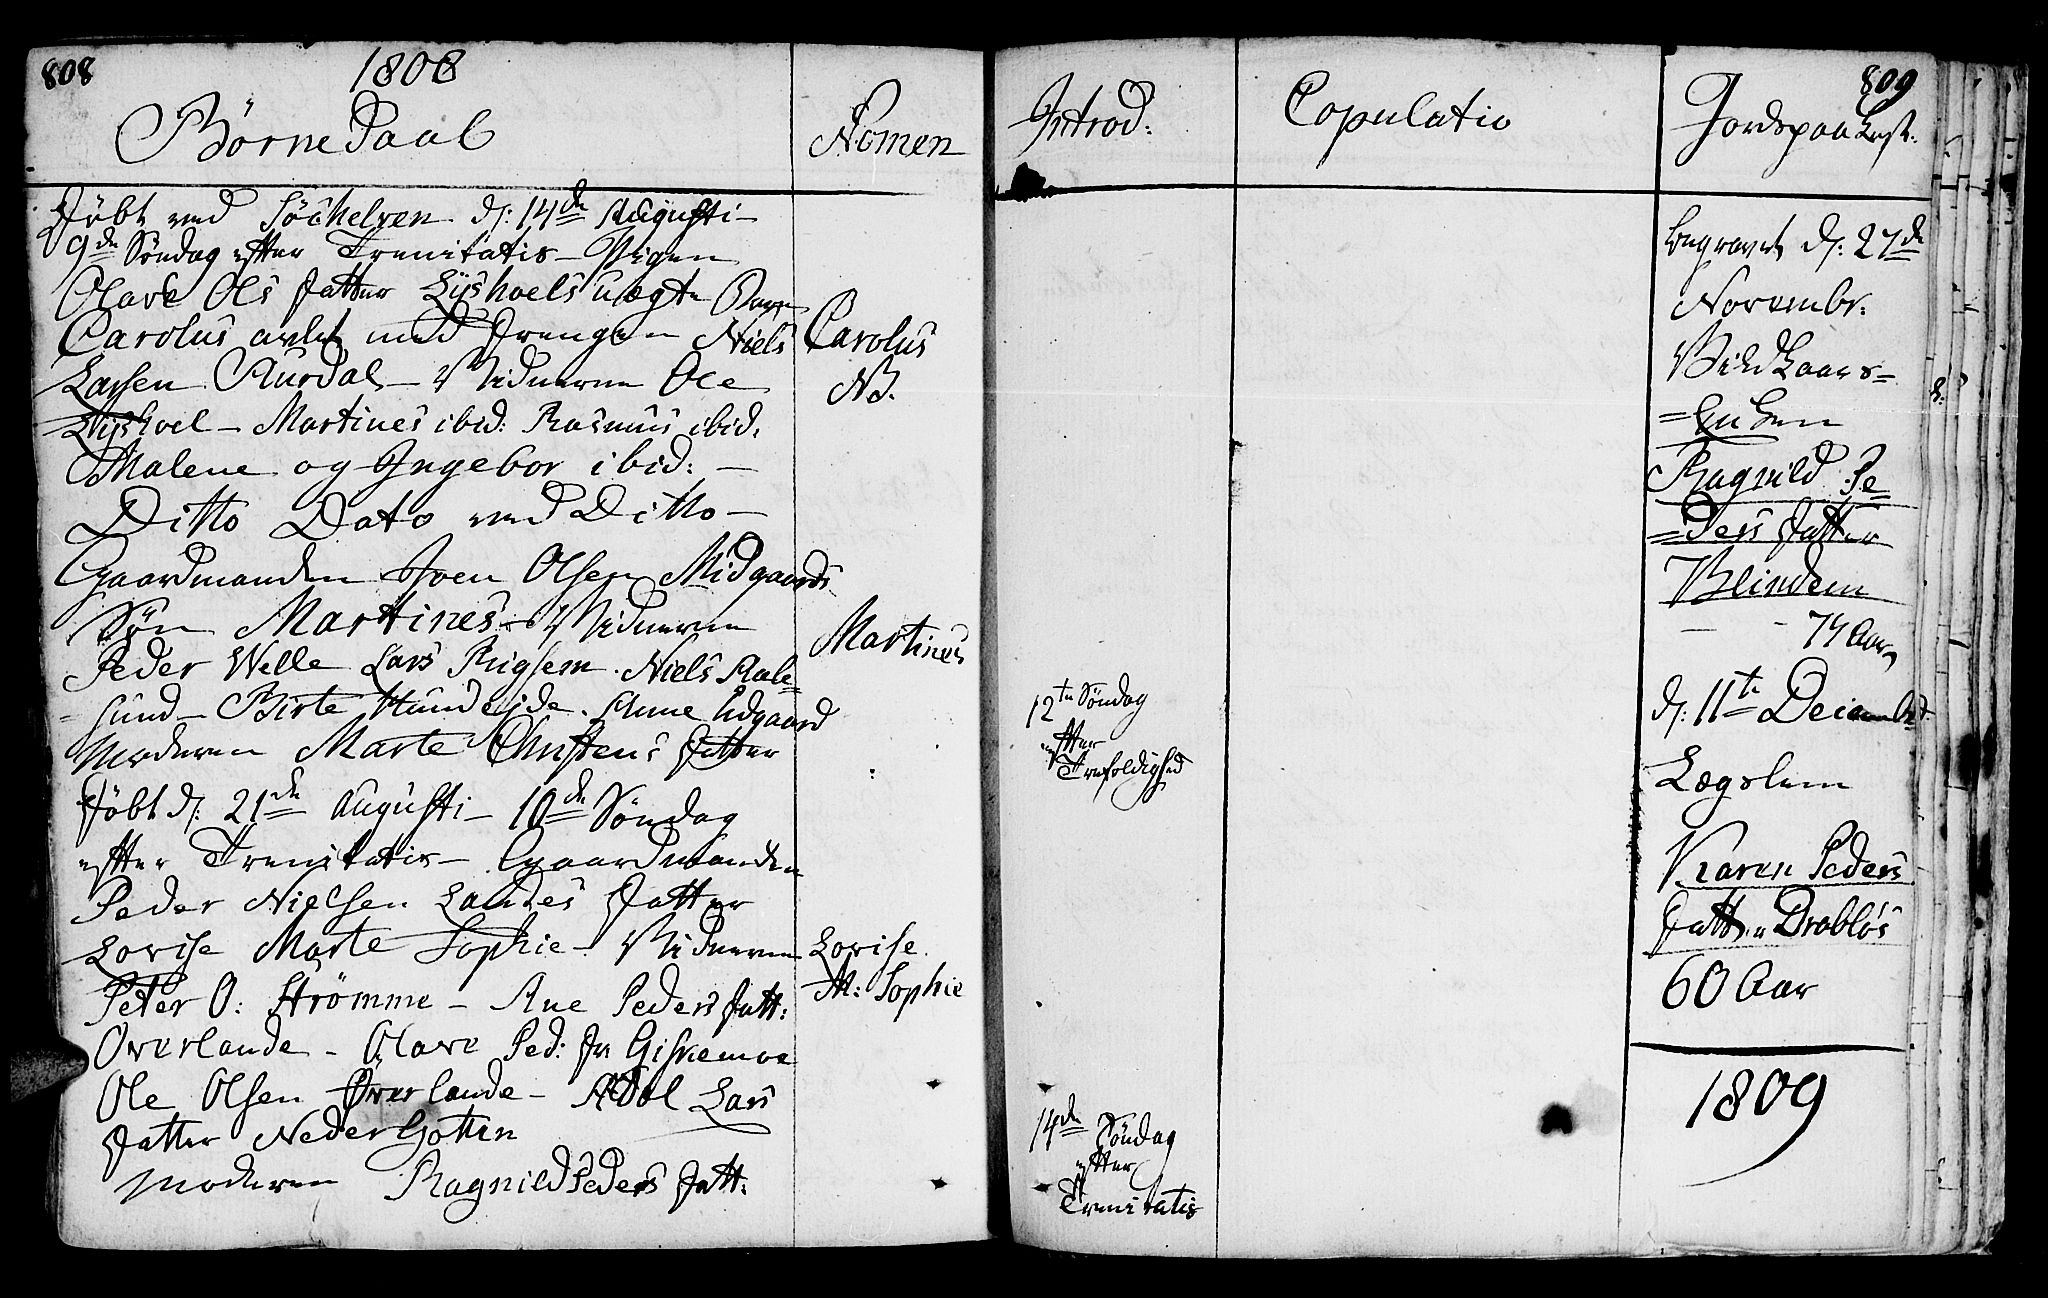 808
1808
Børne Daab
Nomen
Døbt ved Søchelven d: 14de Augusti –
9de Søndag efter Trenitatis – Pigen
Olave Ols Datter Lyshoels uægte Barn
Carolus avlet med Drengen Niels
Larsen Aurdal – Vidnerne Ole
Lyshoel – Martines ibid: Rasmus ibid:
Malene og Ingebor ibid: –
Carolus
NB.
Ditto Dato ved Ditto –
Gaardmanden Iven Olsen Midgaards
Søn Martines – Vidnerne
Peder Welle Lars Rigsem. Niels Aale=
=sund – Birte Hundejde. Anne Udgaard
Moderen Marte Christens Datter
Martines
Døbt d: 21de Augusti – 10de Søndag
efter Trenitatis – Gaardmanden
Peder Nielsen Landes Datter
Lovise Marte Sophie – Vidnerne
Peter O: Strømme – Ane Peders Datt:
Overlande – Olave Ped: Dr Giskemoe
Ole Olsen Øverlande – Abel Lars
Datter Neder Gotten
Moderen Ragnild Peders Datt:
Lovise
M: Sophie
809
Introd:
12te Søndag
efter
Trefoldighed
14de Søndag
efter
Trenitatis
Copulatio
Jordspaa Kast:
begravet d: 27de
Novembr:
Vild Laars=
Ragnild Pe=
=ders Datter
Blindem
74 Aar
d: 11te Decembr
Lægslem
Karen Peders
Datter Drabløs
60 Aar
1809